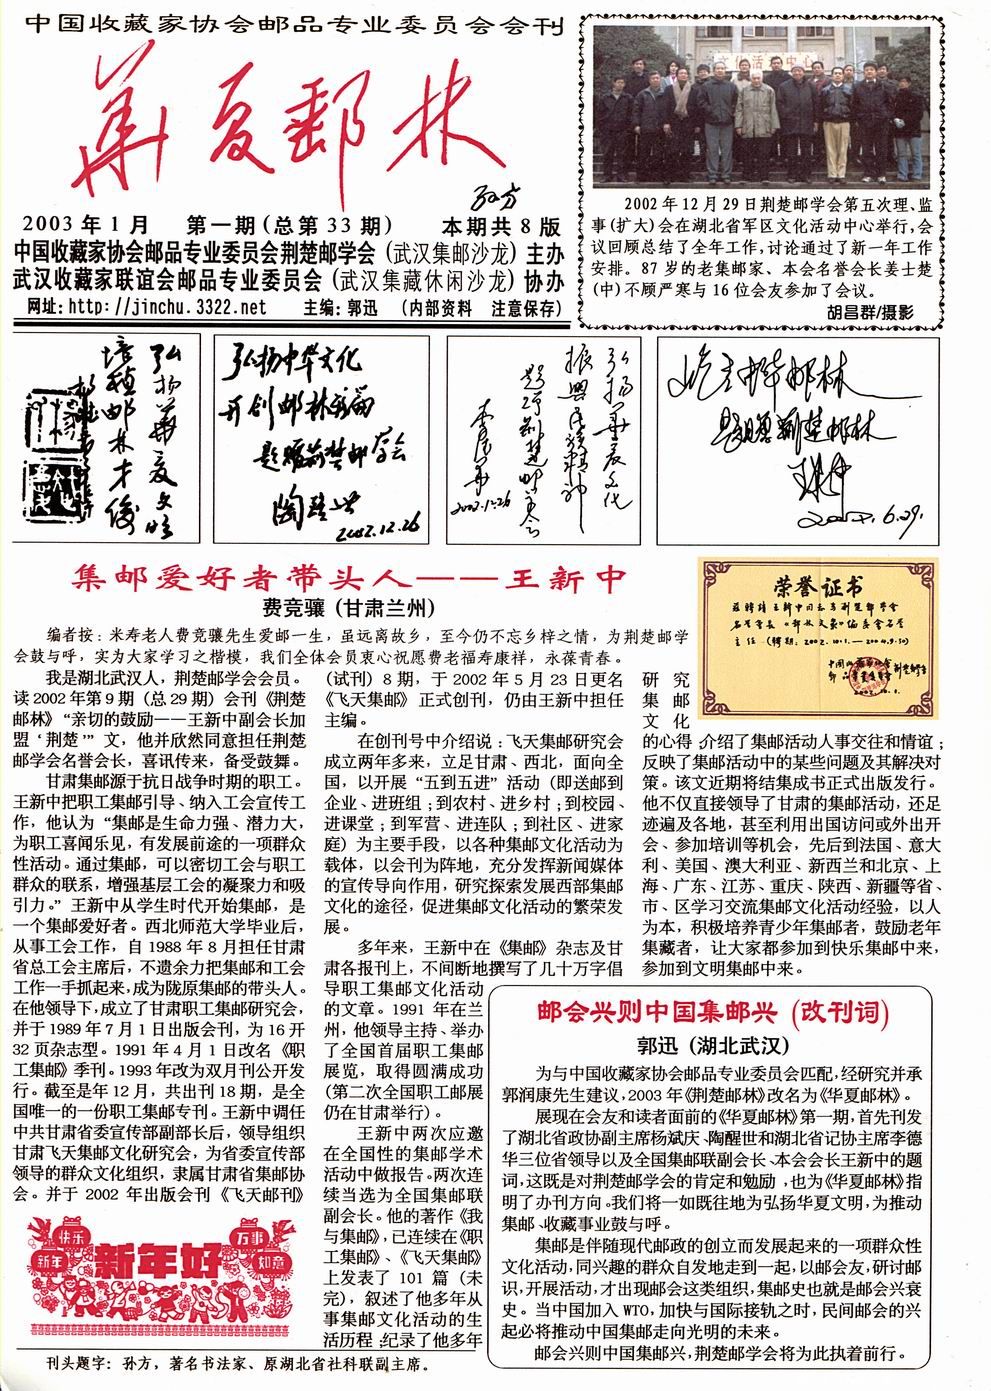 中国收藏家协会邮品专业委员会会刊
华夏邮林
孙方
2003年1月 第一期(总第33期) 本期共8版
中国收藏家协会邮品专业委员会荆楚邮学会(武汉集邮沙龙)主办
武汉收藏家联谊会邮品专业委员会(武汉集藏休闲沙龙)协办
网址:http://jinchu.3322.net 主编:郭迅 (内部资料 注意保存)
文化活动中心
2002年12月29日荆楚邮学会第五次理、监
事(扩大)会在湖北省军区文化活动中心举行,会
议回顾总结了全年工作,讨论通过了新一年工作
安排。87岁的老集邮家、本会名誉会长姜士楚
(中)不顾严寒与16位会友参加了会议。
胡昌群/摄影
弘扬华夏文明
培植邮林才俊
弘扬中华文化
开创邮林新篇
题赠荆楚邮学会
陶醒世
2002.12.26
弘扬华夏文化
振兴民族精神
题赠荆楚邮学会
李德华
2002.12.26
屹立中华邮林
题赠荆楚邮林
集邮爱好者带头人——王新中
费竞骧(甘肃兰州)
编者按:米寿老人费竞骧先生爱邮一生,虽远离故乡,至今仍不忘乡梓之情,为荆楚邮学
会鼓与呼,实为大家学习之楷模,我们全体会员衷心祝愿费老福寿康祥,永葆青春。
我是湖北武汉人,荆楚邮学会会员。
读2002年第9期(总29期)会刊《荆楚
邮林》“亲切的鼓励——王新中副会长加
盟‘荆楚’”文,他并欣然同意担任荆楚
邮学会名誉会长,喜讯传来,备受鼓舞。
甘肃集邮源于抗日战争时期的职工。
王新中把职工集邮引导、纳入工会宣传工
作,他认为“集邮是生命力强、潜力大,
为职工喜闻乐见,有发展前途的一项群众
性活动。通过集邮,可以密切工会与职工
群众的联系,增强基层工会的凝聚力和吸
引力。”王新中从学生时代开始集邮,是
一个集邮爱好者。西北师范大学毕业后,
从事工会工作,自1988年8月担任甘肃
省总工会主席后,不遗余力把集邮和工会
工作一手抓起来,成为陇原集邮的带头人。
在他领导下,成立了甘肃职工集邮研究会,
并于1989年7月1日出版会刊,为16开
32页杂志型。1991年4月1日改名《职
工集邮》季刊。1993年改为双月刊公开发
行。截至是年12月,共出刊18期,是全
国唯一的一份职工集邮专刊。王新中调任
中共甘肃省委宣传部副部长后,领导组织
甘肃飞天集邮文化研究会,为省委宣传部
领导的群众文化组织,隶属甘肃省集邮协
会。并于2002年出版会刊《飞天邮刊》
(试刊)8期,于2002年5月23日更名
《飞天集邮》正式创刊,仍由王新中担任
主编。
在创刊号中介绍说:飞天集邮研究会
成立两年多来,立足甘肃、西北,面向全
国,以开展“五到五进”活动(即送邮到
企业、进班组;到农村、进乡村;到校园、
进课堂;到军营、进连队;到社区、进家
庭)为主要手段,以各种集邮文化活动为
载体,以会刊为阵地,充分发挥新闻媒体
的宣传导向作用,研究探索发展西部集邮
文化的途径,促进集邮文化活动的繁荣发
展。
多年来,王新中在《集邮》杂志及甘
肃各报刊上,不间断地撰写了几十万字倡
导职工集邮文化活动
的文章。1991年在兰
州,他领导主持、举办
了全国首届职工集邮
展览,取得圆满成功
(第二次全国职工邮展
仍在甘肃举行)。
王新中两次应邀
在全国性的集邮学术
活动中做报告。两次连
续当选为全国集邮联
副会长。他的著作《我
与集邮》,已连续在《职
工集邮》、《飞天集邮》
上发表了101篇(未
完),叙述了他多年从
事集邮文化活动的生
活历程;纪录了他多年
研究
集邮
文化
的心得;介绍了集邮活动人事交往和情谊;
反映了集邮活动中的某些问题及其解决对
策。该文近期将结集成书正式出版发行。
他不仅直接领导了甘肃的集邮活动,还足
迹遍及各地,甚至利用出国访问或外出开
会、参加培训等机会,先后到法国、意大
利、美国、澳大利亚、新西兰和北京、上
海、广东、江苏、重庆、陕西、新疆等省、
市、区学习交流集邮文化活动经验,以人
为本,积极培养青少年集邮者,鼓励老年
集藏者,让大家都参加到快乐集邮中来,
参加到文明集邮中来。
荣誉证书
兹聘请王新中同志为荆楚邮学会
名誉会长《邮林文丛》编委会名誉
主任(聘期:2002.10.1.—2004.9.30)
邮会兴则中国集邮兴(改刊词)
郭迅(湖北武汉)
为与中国收藏家协会邮品专业委员会匹配,经研究并承
郭润康先生建议,2003年《荆楚邮林》改名为《华夏邮林》。
展现在会友和读者面前的《华夏邮林》第一期,首先刊发
了湖北省政协副主席杨斌庆、陶醒世和湖北省记协主席李德
华三位省领导以及全国集邮联副会长、本会会长王新中的题
词,这既是对荆楚邮学会的肯定和勉励,也为《华夏邮林》指
明了办刊方向。我们将一如既往地为弘扬华夏文明,为推动
集邮、收藏事业鼓与呼。
集邮是伴随现代邮政的创立而发展起来的一项群众性
文化活动,同兴趣的群众自发地走到一起,以邮会友,研讨邮
识,开展活动,才出现邮会这类组织,集邮史也就是邮会兴衰
史。当中国加入WTO,加快与国际接轨之时,民间邮会的兴
起必将推动中国集邮走向光明的未来。
邮会兴则中国集邮兴,荆楚邮学会将为此执着前行。
快乐
新年
新年好
万事
如意
刊头题字:孙方,著名书法家、原湖北省社科联副主席。